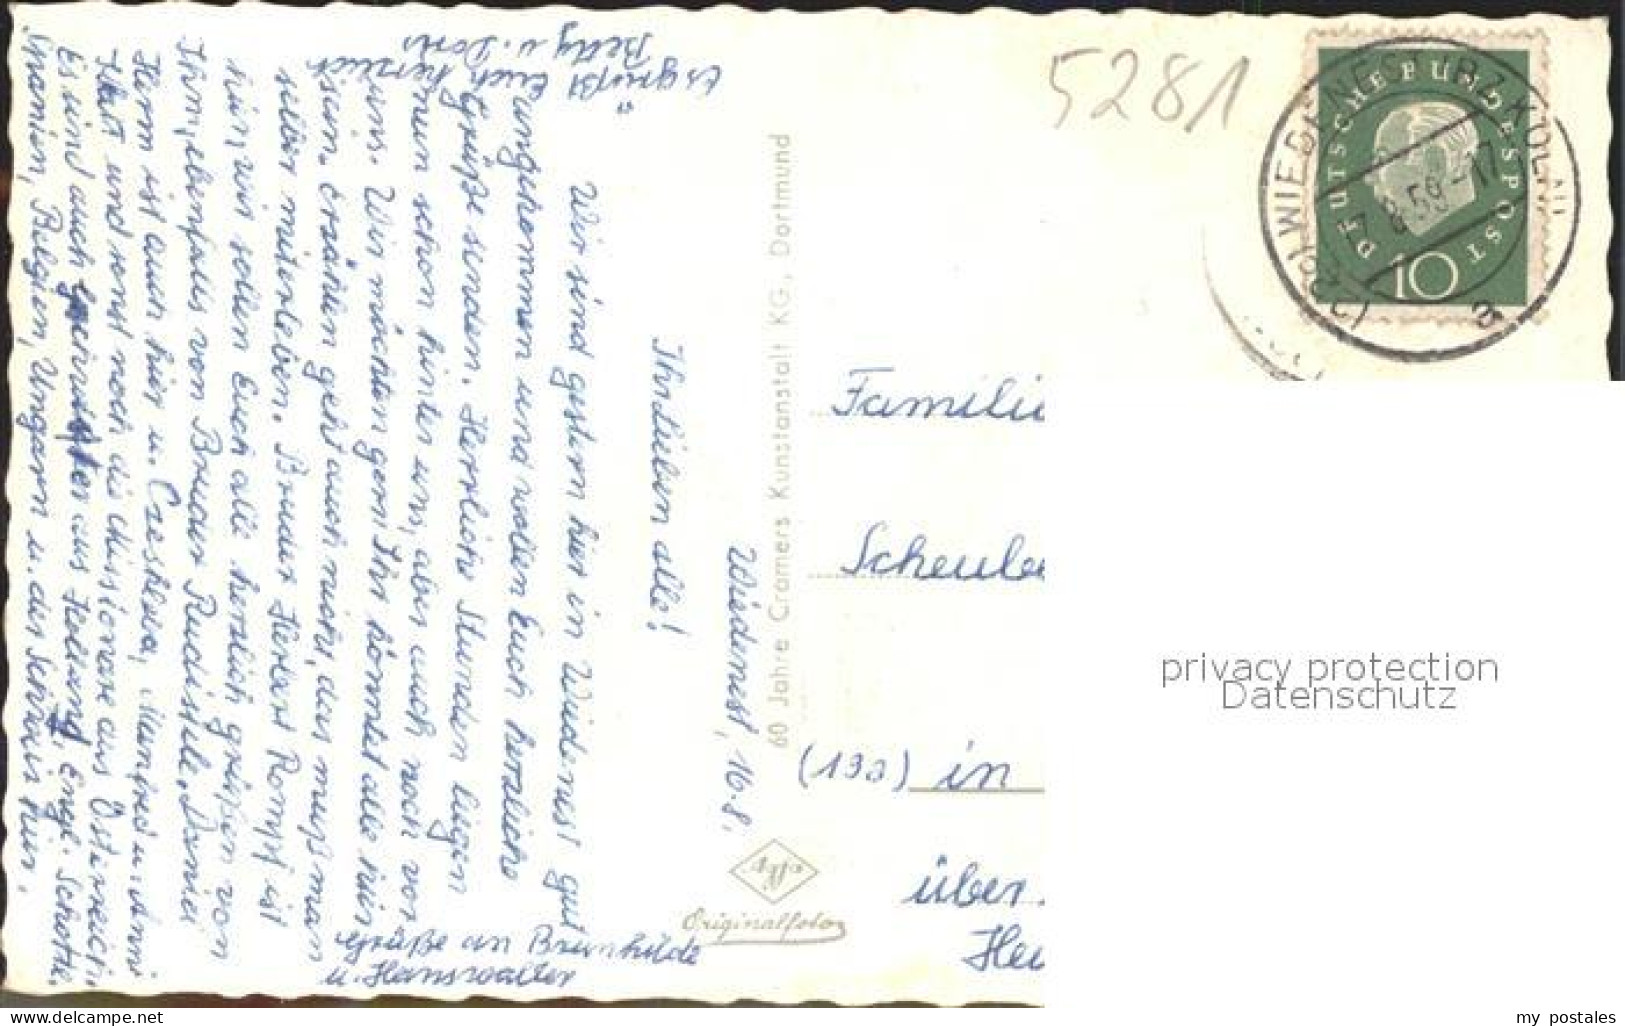 Wiedenest, 16.8.
Ihr Lieben alle!
Wir sind gestern hier in Wiedenest gut
angekommen und wollen Euch herzliche
Grüße senden. Herrliche Stunden liegen
nun schon hinter uns, aber auch noch vor
uns. Wir möchten gern Ihr könntet alle hier
sein. Erzählen geht auch nicht, das muß man
selber miterleben. Bruder Herbert Rompf ist
hier, wir sollen Euch alle herzlich grüßen von
Ihm, ebenfalls von Bruder Rudisile. Daniel
Herm ist auch hier u. Czeslowa, Manfred u. Anni
und sonst noch die Missionare aus Österreich.
Es sind auch aus Holland, Engl. Schottl.
Spanien, Belgien, Ungarn u. der Schweiz hier.
Es grüßt Euch herzlich
Betty u. Doris
Grüße an Brunhilde
u. Hanswalter
60 Jahre Cramers Kunstanstalt KG, Dortmund
Agfa
Originalfoto
5281
DEUTSCHE BUNDESPOST
10
(22c) WIEDENEST BZ KÖLN
8.59-17
a
Familie
(13a) in
über
privacy protection
Datenschutz
my postales